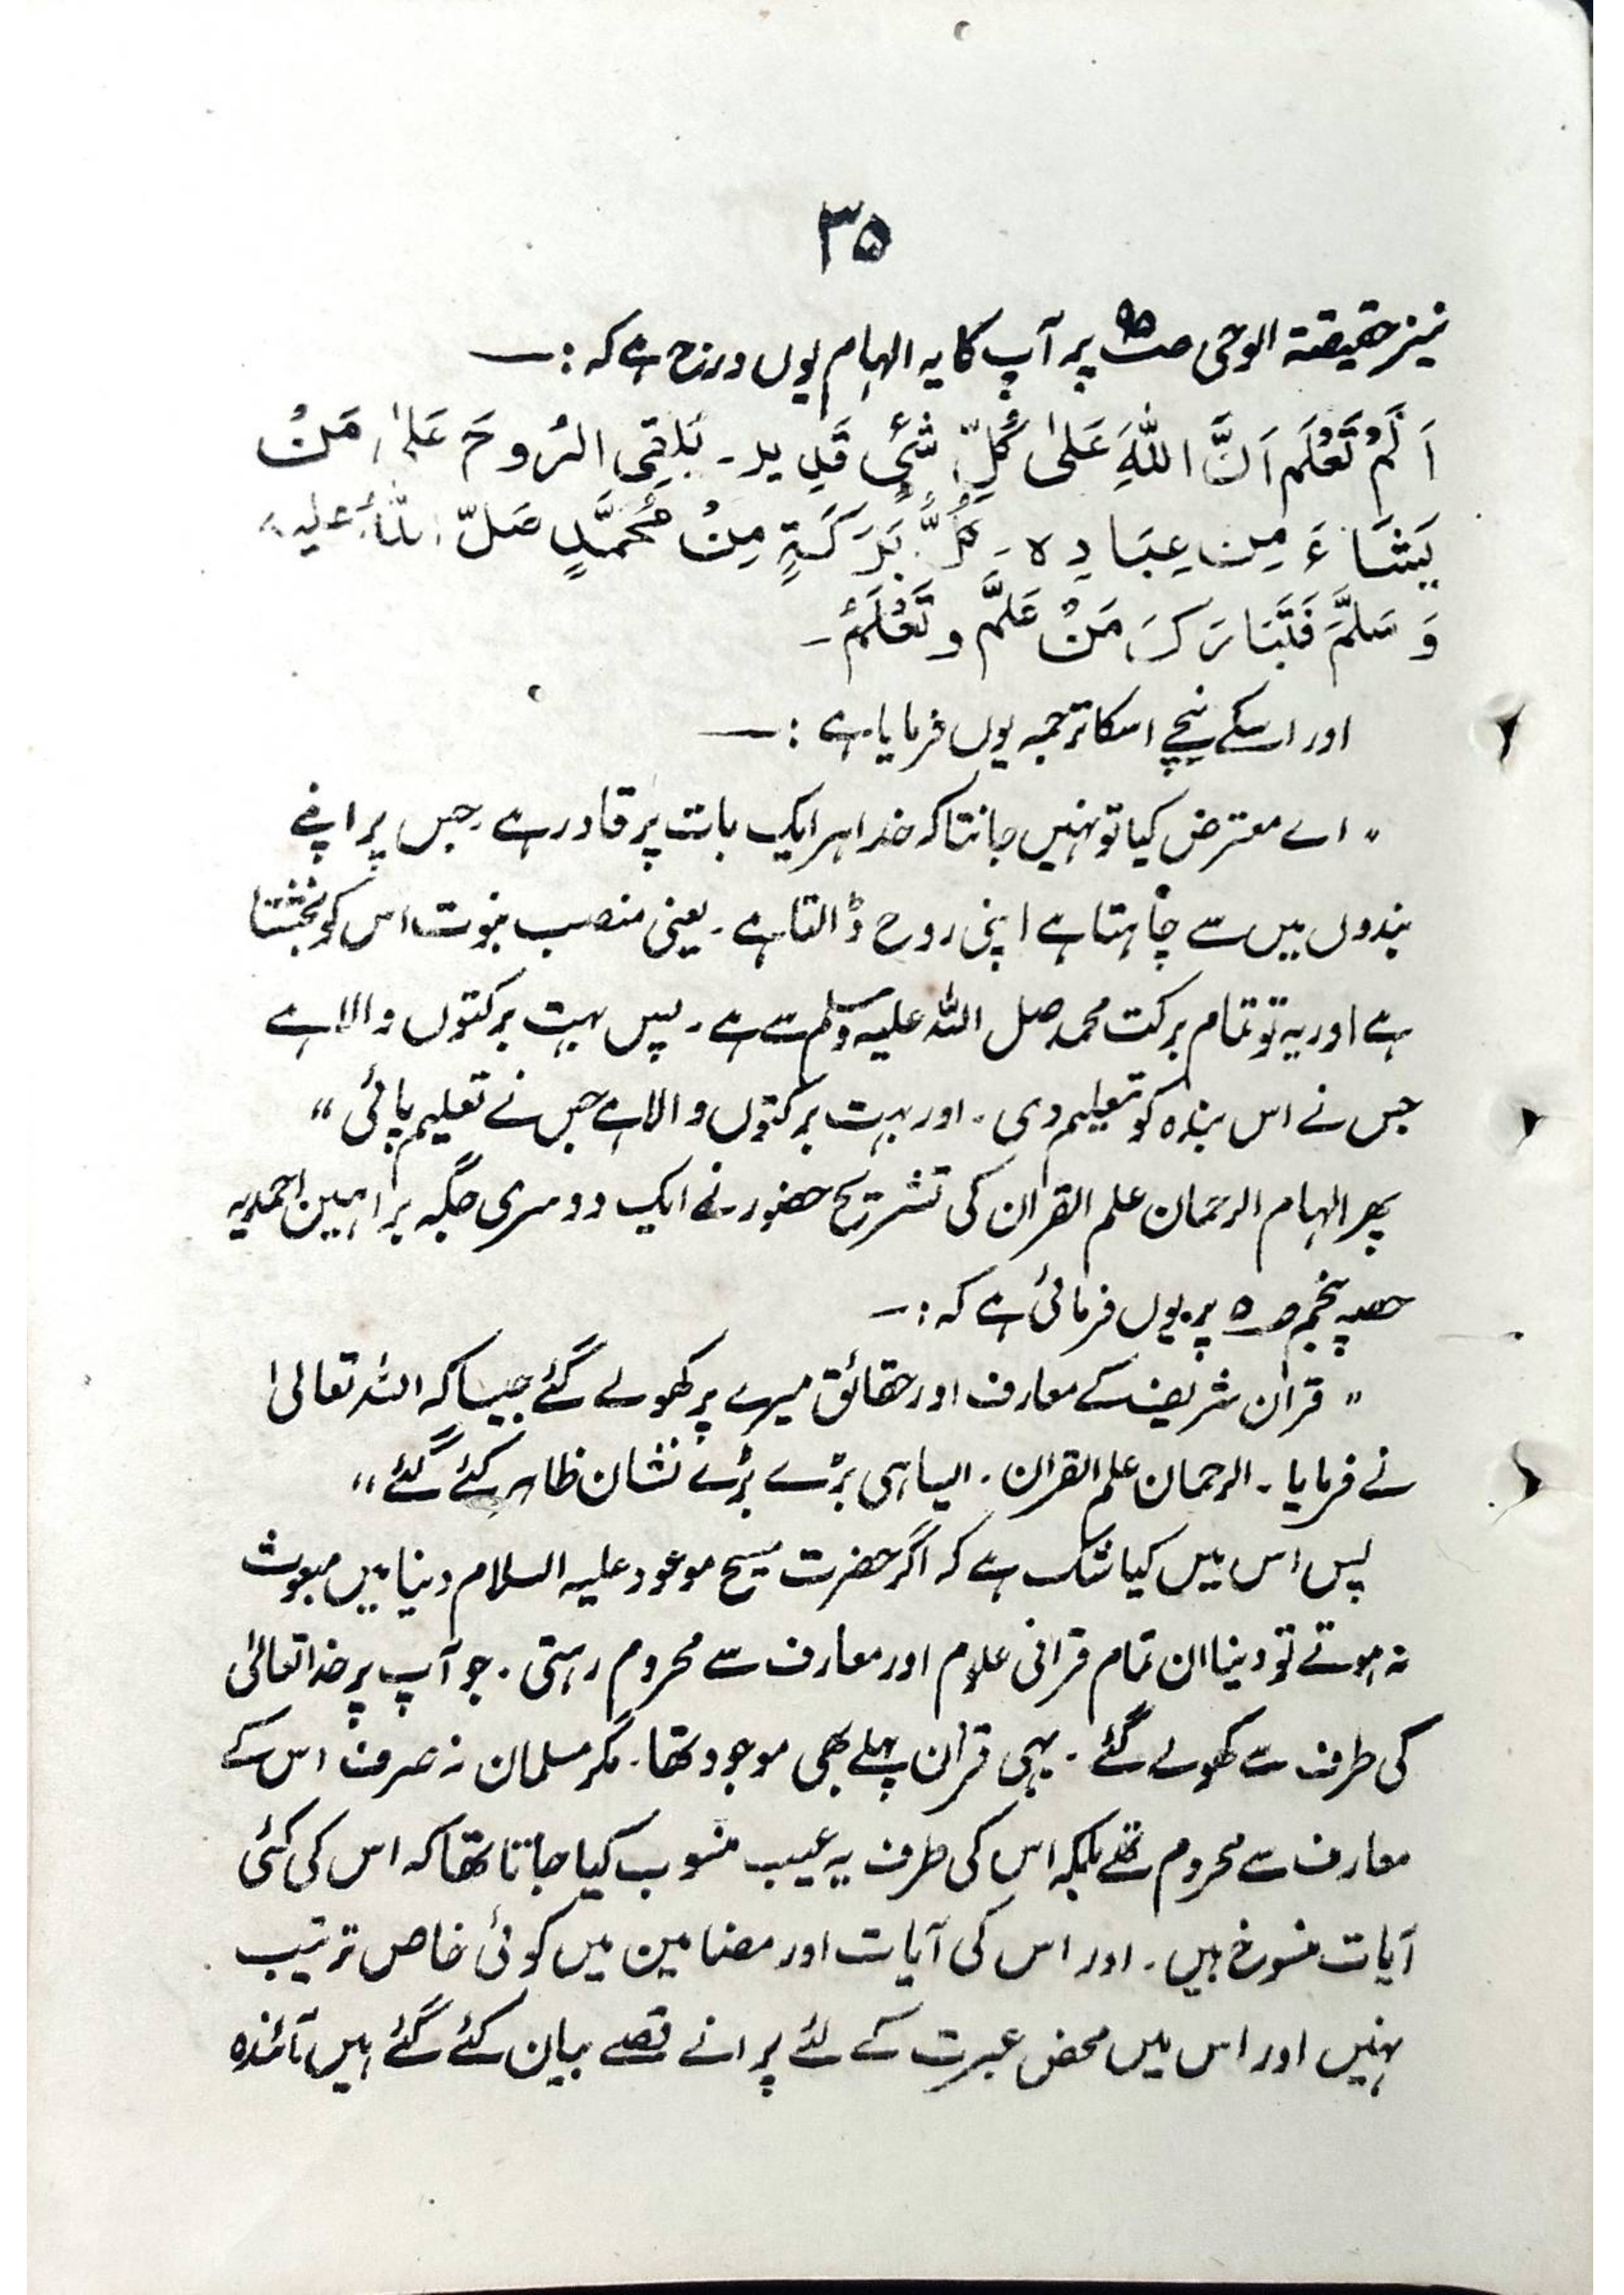 ۳۵
نیز حقیقتہ الوحی ص۹۵ پر آپ کا یہ الہام یوں درج ہے کہ :—
اَلَمْ تَعْلَم اَنَّ اللّٰہَ عَلیٰ کُلِّ شَیْءٍ قَدِید۔ یَلقِی الرُوحَ عَلیٰ مَنْ
یَشَاءَ مِن عِبَادِہ ۔ کُلُّ بَرَکَۃٍ مِنْ مُحَمَّدٍ صَلّ اللّٰہُ علیہِ
وَسَلَّمَ فَتَبَارَکَ مَنْ عَلَّم و تَعْلَمُ۔
اور اسکے نیچے اسکا ترجمہ یوں فرمایا ہے :—
” اے معترض کیا تو نہیں جانتا کہ خدا ہر ایک بات پر قادر ہے ۔ جس پر اپنے
بندوں میں سے چاہتا ہے اپنی روح ڈالتا ہے ۔ یعنی منصب نبوت اس کو بخشتا
ہے اور یہ تو تمام برکت محمد صل اللہ علیہ وسلم سے ہے ۔ پس بہت برکتوں والا ہے
جس نے اس بندہ کو تعلیم دی ۔ اور بہت برکتوں والا ہے جس نے تعلیم پائی “
پھر الہام الرحمان علم القران کی تشریح حضور نے ایک دوسری جگہ براہین احمدیہ
حصہ پنجم ص۵ پر یوں فرمائی ہے کہ :—
” قران شریف کے معارف اور حقائق میرے پر کھولے گئے جیسا کہ اللہ تعالیٰ
نے فرمایا ۔ الرحمان علم القران ۔ ایسا ہی بڑے بڑے نشان ظاہر کئے گئے “
پس اس میں کیا شک ہے کہ اگر حضرت مسیح موعود علیہ السلام دنیا میں مبعوث
نہ ہوتے تو دنیا ان تمام قرانی علوم اور معارف سے محروم رہتی ۔ جو آپ پر خدا تعالیٰ
کی طرف سے کھولے گئے ۔ یہی قرآن پہلے بھی موجود تھا ۔ مگر مسلمان نہ صرف اس کے
معارف سے محروم تھے بلکہ اس کی طرف یہ عیب منسوب کیا جاتا تھا کہ اس کی کئی
آیات منسوخ ہیں ۔ اور اس کی آیات اور مضامین میں کوئی خاص ترتیب
نہیں اور اس میں محض عبرت کے لئے پرانے قصے بیان کئے گئے ہیں آئندہ